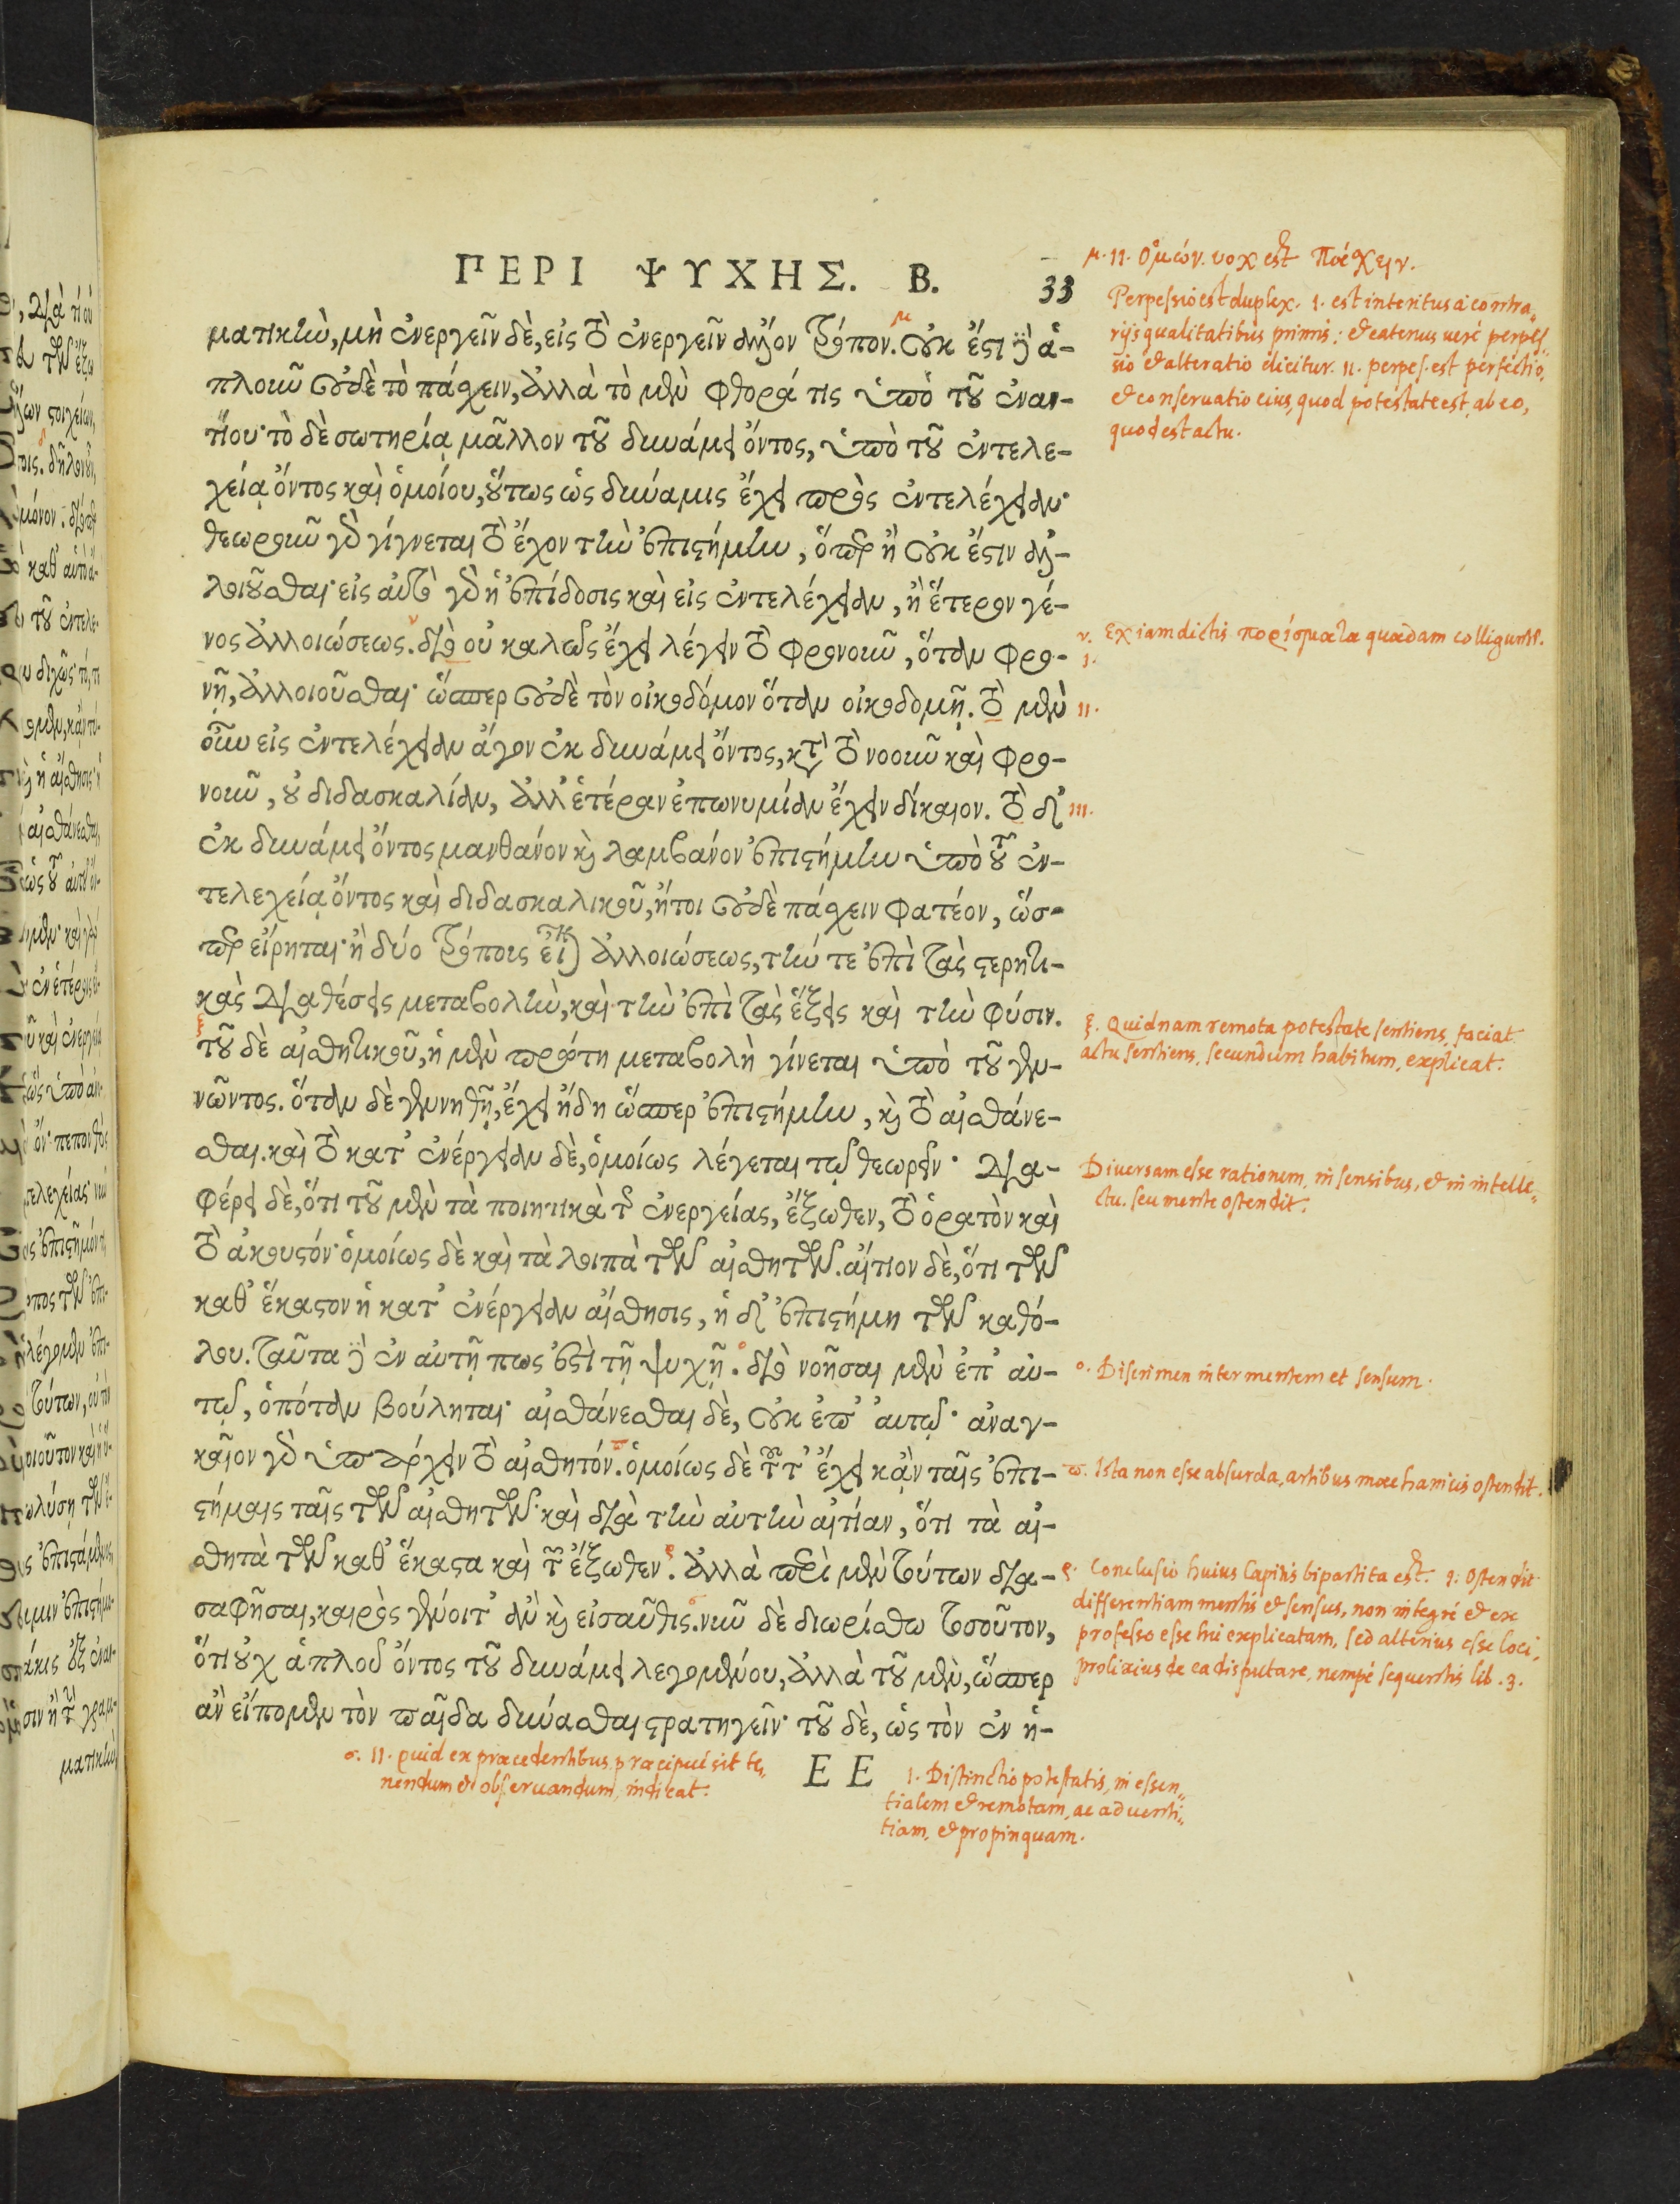 ΠΕΡΙ ΨΥΧΗΣ. Β.
33
ματικὴν, μὴ ἐνεργεῖν δὲ, εἰς τὸ ἐνεργεῖν ἄλλον τρόπον. οὐκ ἔστι δ' ἁ-
πλοῦν οὐδὲ τὸ πάσχειν, ἀλλὰ τὸ μὲν φθορά τις ὑπὸ τοῦ ἐναν-
τίου· τὸ δὲ σωτηρία μᾶλλον τοῦ δυνάμει ὄντος, ὑπὸ τοῦ ἐντελε-
χείᾳ ὄντος καὶ ὁμοίου, οὕτως ὡς δύναμις ἔχει πρὸς ἐντελέχειαν·
θεωροῦν γὰρ γίγνεται τὸ ἔχον τὴν ἐπιστήμην, ὅπερ ἢ οὐκ ἔστιν ἀλ-
λοιοῦσθαι· εἰς αὐτὸ γὰρ ἡ ἐπίδοσις καὶ εἰς ἐντελέχειαν, ἢ ἕτερον γέ-
νος ἀλλοιώσεως. διὸ οὐ καλῶς ἔχει λέγειν τὸ φρονοῦν, ὅταν φρο-
νῇ, ἀλλοιοῦσθαι· ὥσπερ οὐδὲ τὸν οἰκοδόμον ὅταν οἰκοδομῇ. τὸ μὲν
οὖν εἰς ἐντελέχειαν ἄγον ἐκ δυνάμει ὄντος, κατὰ τὸ νοοῦν καὶ φρο-
νοῦν, οὐ διδασκαλίαν, ἀλλ' ἑτέραν ἐπωνυμίαν ἔχειν δίκαιον. τὸ δ'
ἐκ δυνάμει ὄντος μανθάνον καὶ λαμβάνον ἐπιστήμην ὑπὸ τοῦ ἐν-
τελεχείᾳ ὄντος καὶ διδασκαλικοῦ, ἤτοι οὐδὲ πάσχειν φατέον, ὥσ-
περ εἴρηται· ἢ δύο τρόπους εἶναι ἀλλοιώσεως, τήν τε ἐπὶ τὰς στερητι-
κὰς διαθέσεις μεταβολὴν, καὶ τὴν ἐπὶ τὰς ἕξεις καὶ τὴν φύσιν.
τοῦ δὲ αἰσθητικοῦ, ἡ μὲν πρώτη μεταβολὴ γίνεται ὑπὸ τοῦ γεν-
νῶντος. ὅταν δὲ γεννηθῇ, ἔχει ἤδη ὥσπερ ἐπιστήμην, καὶ τὸ αἰσθάνε-
σθαι. καὶ τὸ κατ' ἐνέργειαν δὲ, ὁμοίως λέγεται τῷ θεωρεῖν· δια-
φέρει δὲ, ὅτι τοῦ μὲν τὰ ποιητικὰ τῆς ἐνεργείας, ἔξωθεν, τὸ ὁρατὸν καὶ
τὸ ἀκουστόν· ὁμοίως δὲ καὶ τὰ λοιπὰ τῶν αἰσθητῶν. αἴτιον δὲ, ὅτι τῶν
καθ' ἕκαστον ἡ κατ' ἐνέργειαν αἴσθησις, ἡ δ' ἐπιστήμη τῶν καθό-
λου. ταῦτα δ' ἐν αὐτῇ πως ἐστὶ τῇ ψυχῇ. διὸ νοῆσαι μὲν ἐπ' αὐ-
τῷ, ὁπόταν βούληται· αἰσθάνεσθαι δὲ, οὐκ ἐπ' αὐτῷ· ἀναγ-
καῖον γὰρ ὑπάρχειν τὸ αἰσθητόν. ὁμοίως δὲ τοῦτ' ἔχει κἂν ταῖς ἐπι-
στήμαις ταῖς τῶν αἰσθητῶν· καὶ διὰ τὴν αὐτὴν αἰτίαν, ὅτι τὰ αἰ-
σθητὰ τῶν καθ' ἕκαστα καὶ τῶν ἔξωθεν. ἀλλὰ περὶ μὲν τούτων δια-
σαφῆσαι, καιρὸς γένοιτ' ἂν καὶ εἰσαῦθις. νῦν δὲ διωρίσθω τοσοῦτον,
ὅτι οὐχ ἁπλοῦ ὄντος τοῦ δυνάμει λεγομένου, ἀλλὰ τοῦ μὲν, ὥσπερ
ἂν εἴπομεν τὸν παῖδα δύνασθαι στρατηγεῖν· τοῦ δὲ, ὡς τὸν ἐν ἡ-
ΕΕ
μ. 11. Ὁμών. vox est πάσχειν.
Perpessio est duplex. 1. est interitus a contra„
rijs qualitatibus primis: et eatenus verè perpes„
sio et alteratio dicitur. 11. perpes. est perfectio,
et conservatio eius, quod potestate est, ab eo,
quod est actu.
ν. Ex iam dictis πορίσματα quædam colligunt̃.
1.
11.
111.
ξ. Quidnam remota potestate sentiens, faciat
actu sentiens, secundùm habitum, explicat.
Diversam esse rationem, in sensibus, et in intelle„
ctu. seu mente ostendit.
ο. Discrimen inter mentem et sensum.
π. Ista non esse absurda, artibus mæchanicis ostendit.
ρ. Conclusio huius Capitis bipartita est. 1. Ostendit
differentiam mentis et sensus, non integrè et ex
professo esse hîc explicatam, sed alterius esse loci,
prolixius de ea disputare, nempè sequentis lib. 3.
σ. 11. quid ex præcedentibus præcipuè sit te„
nendum et observandum, indicat.
1. Distinctio potestatis, in essen„
tialem et remotam, ac adventi„
tiam, et propinquam.